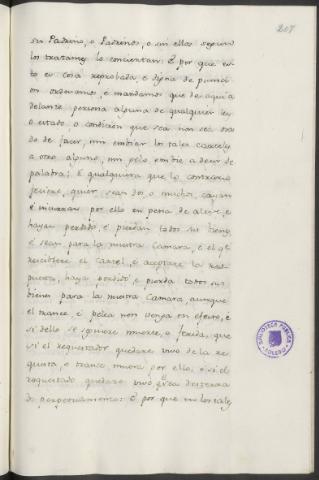 207
sin Padrino, o Padrinos, o sin ellos segund
los tratantes lo concuertan: E por que es-
to es cosa reprobada, e digna de punicion
ordenamos, e mandamos que de aqui a
delante persona alguna de qualquier ley,
o estado, o condición que sea non sea osa
do de facer, nin embiar los tales carteles
a otro alguno, nin gelo embie a decir de
palabra; E qualquiera que lo contrario
ficiere, quier sean dos o muchos, cayan
é incurran por ello en pena de aleve, e
hayan perdido, e pierdan todos sus bienes,
é sean para la nuestra Camara, e el que
recibiere el Cartel, e aceptare la res-
puesta, haya perdido e pierda todos sus
bienes para la nuestra Camara, aunque
el trance, é pelea non venga en efecto, e
si dello se siguiere muerte, o ferida, que
si el requestador quedare vivo de la re-
questa, o trance muera por ello; e si el
requestado quedare vivo sea desterra
do perpetuamente: E por que en los tales
BIBLIOTECA PUBLICA
TOLEDO